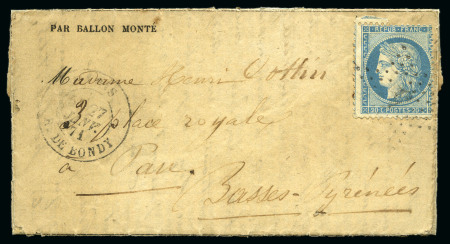 PAR BALLON MONTE
REPUB. FRANC.
Madame Henri
27
JANV.
71
3 place royale
DE BONDY
20 c POSTES 20 c
à Pau
Basses-Pyrénées